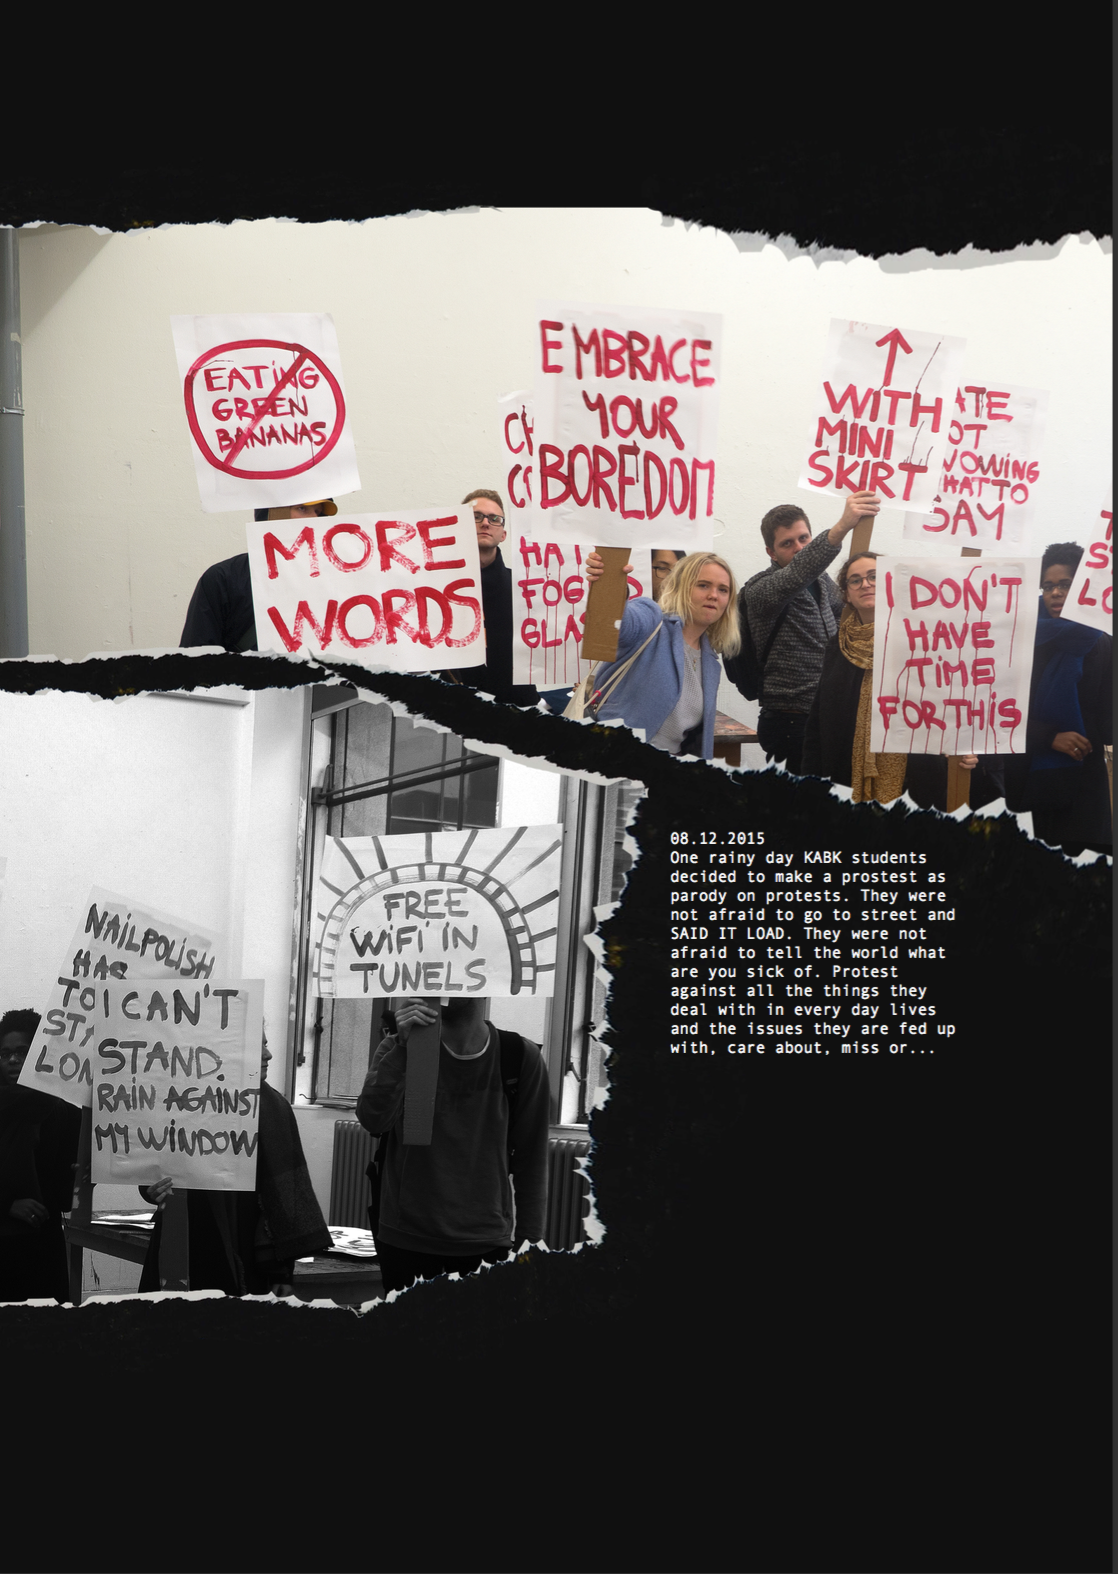 EATING
GREEN
BANANAS
MORE
WORDS
EMBRACE
YOUR
BOREDOM
FOG
WITH
MINI
SKIRT
SAY
I DON'T
HAVE
TIME
FOR THIS
NAILPOLISH
HAS
I CAN'T
STAND
RAIN AGAINST
MY WINDOW
FREE
WIFI IN
TUNELS
08.12.2015
One rainy day KABK students
decided to make a prostest as
parody on protests. They were
not afraid to go to street and
SAID IT LOAD. They were not
afraid to tell the world what
are you sick of. Protest
against all the things they
deal with in every day lives
and the issues they are fed up
with, care about, miss or...